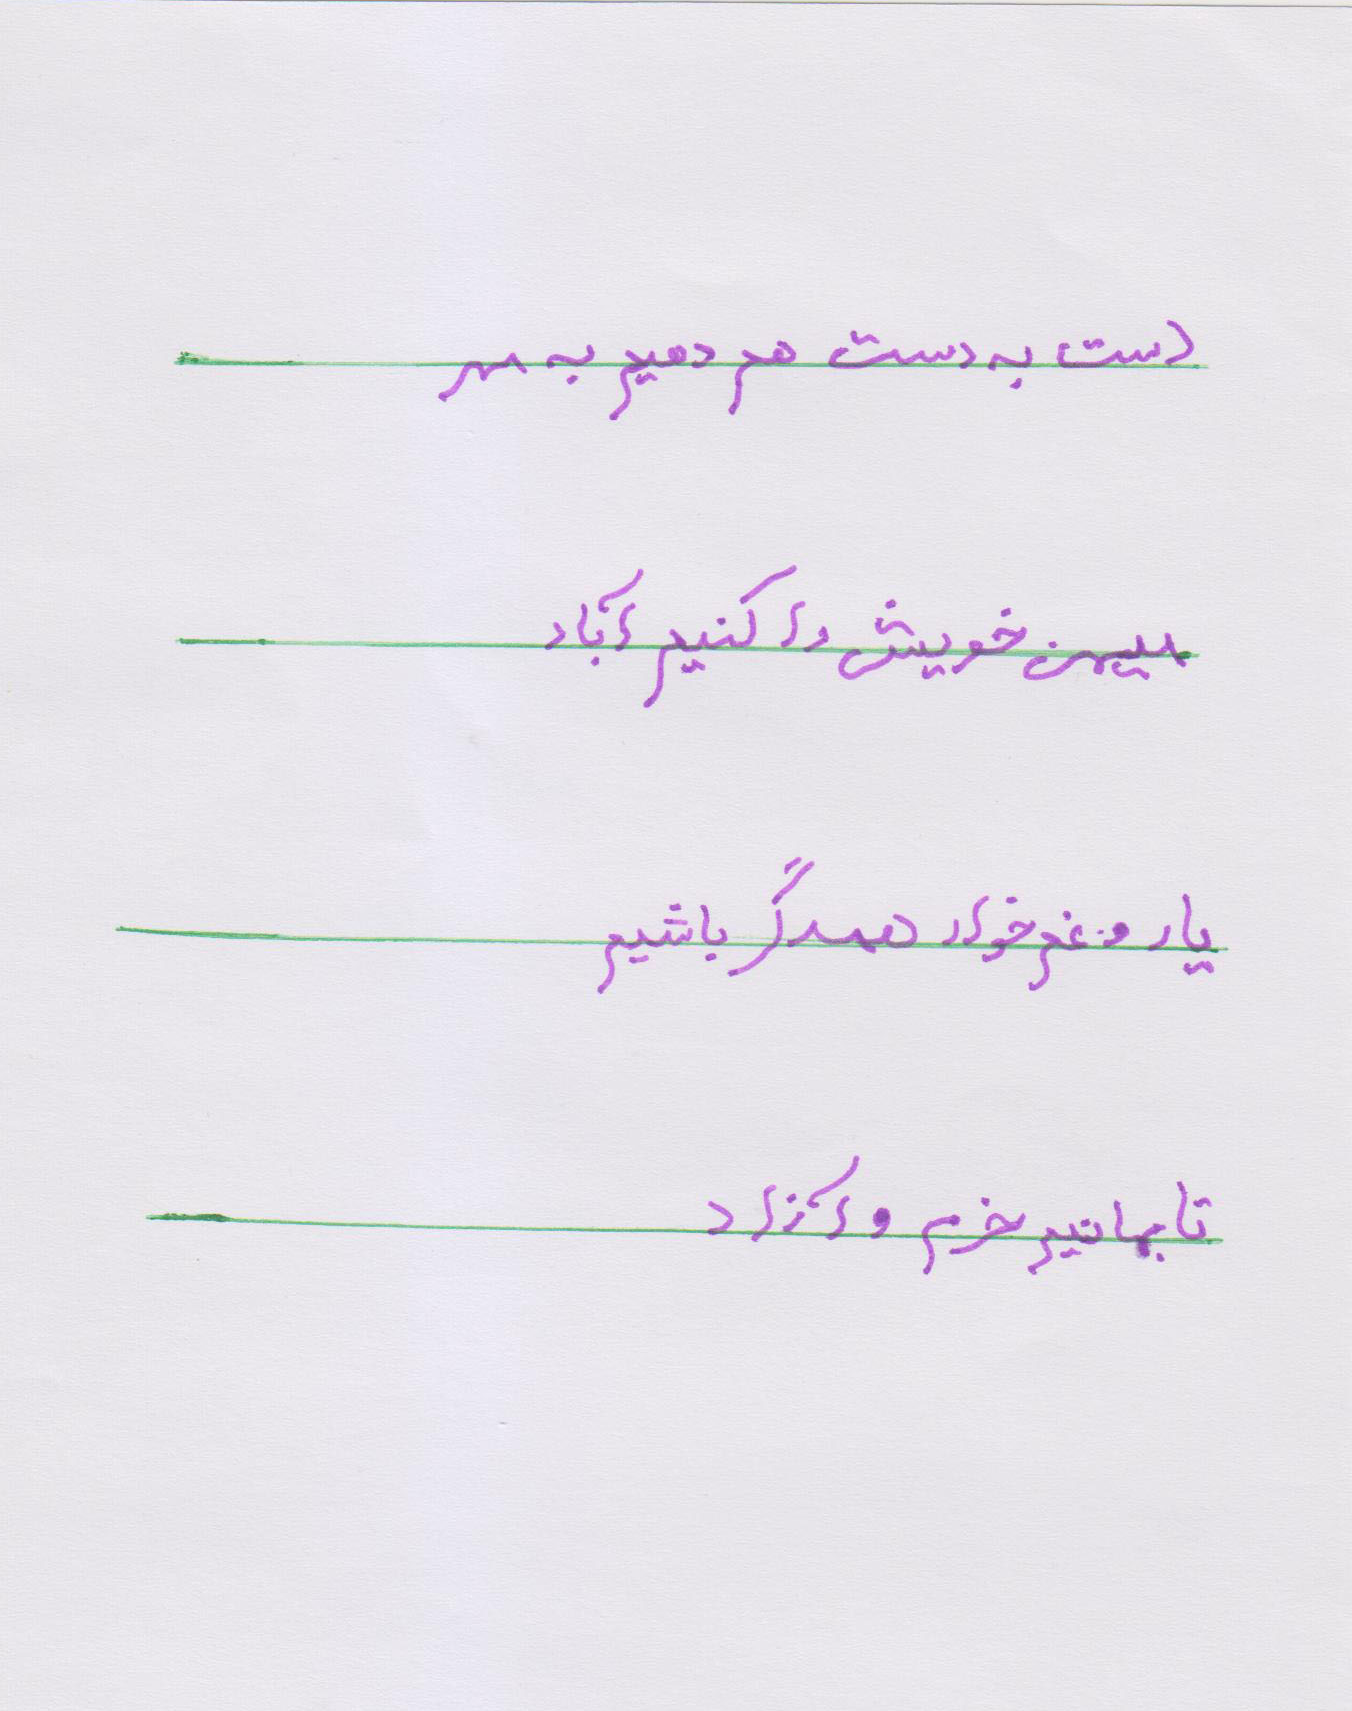 دست به دست هم دهیم به مهر
میهن خویش را کنیم آباد
یار و غم خوار همدگر باشیم
تا بمانیم خرم و آزاد